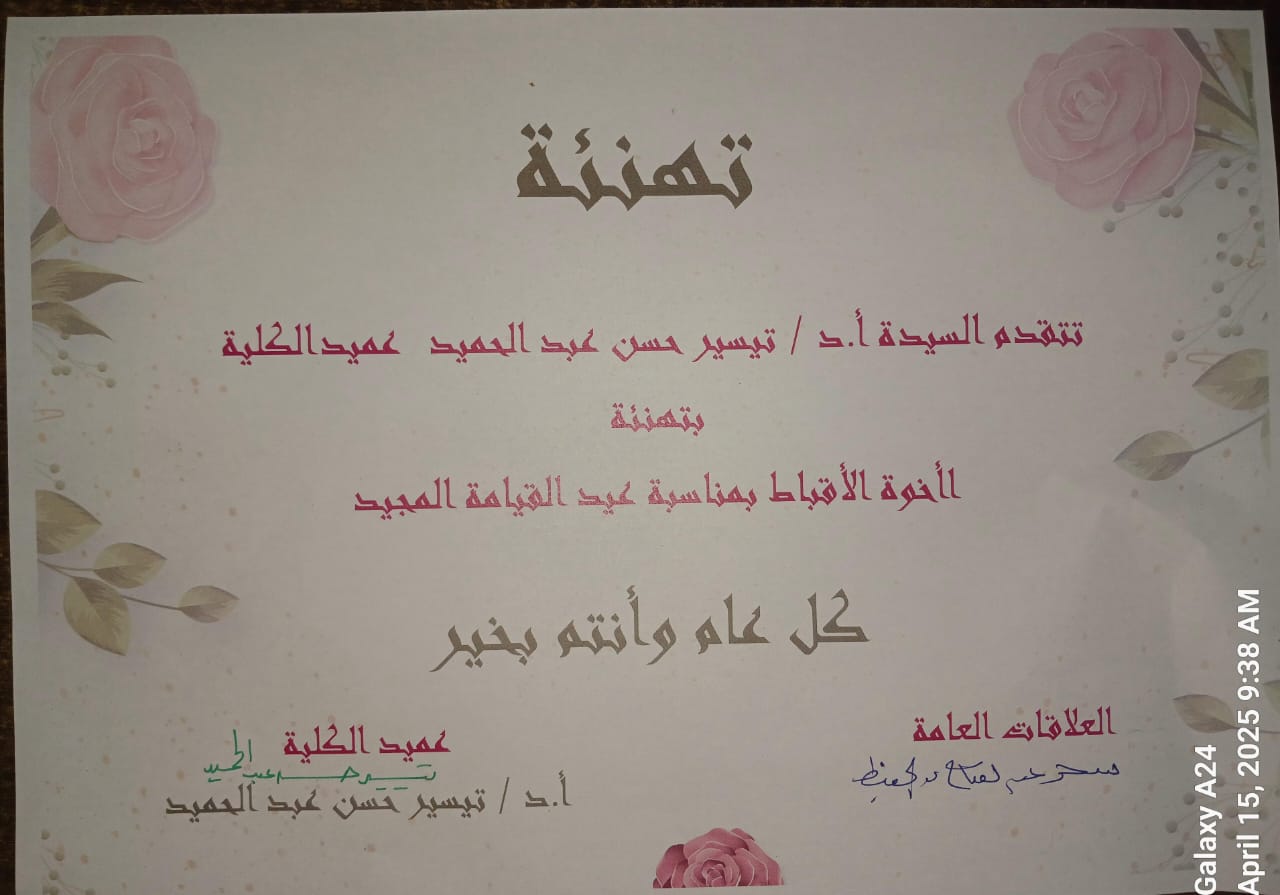 تهنئة
تتقدم السيدة أ.د / تيسير حسن عبد الحميد عميدالكلية
بتهنئة
اأخوة الأقباط بمناسبة عيد القيامة المجيد
كل عام وأنتم بخير
العلاقات العامة
سحر عبد
عميد الكلية
تيسير حسن عبد الحميد
أ.د / تيسير حسن عبد الحميد
Galaxy A24
April 15, 2025 9:38 AM